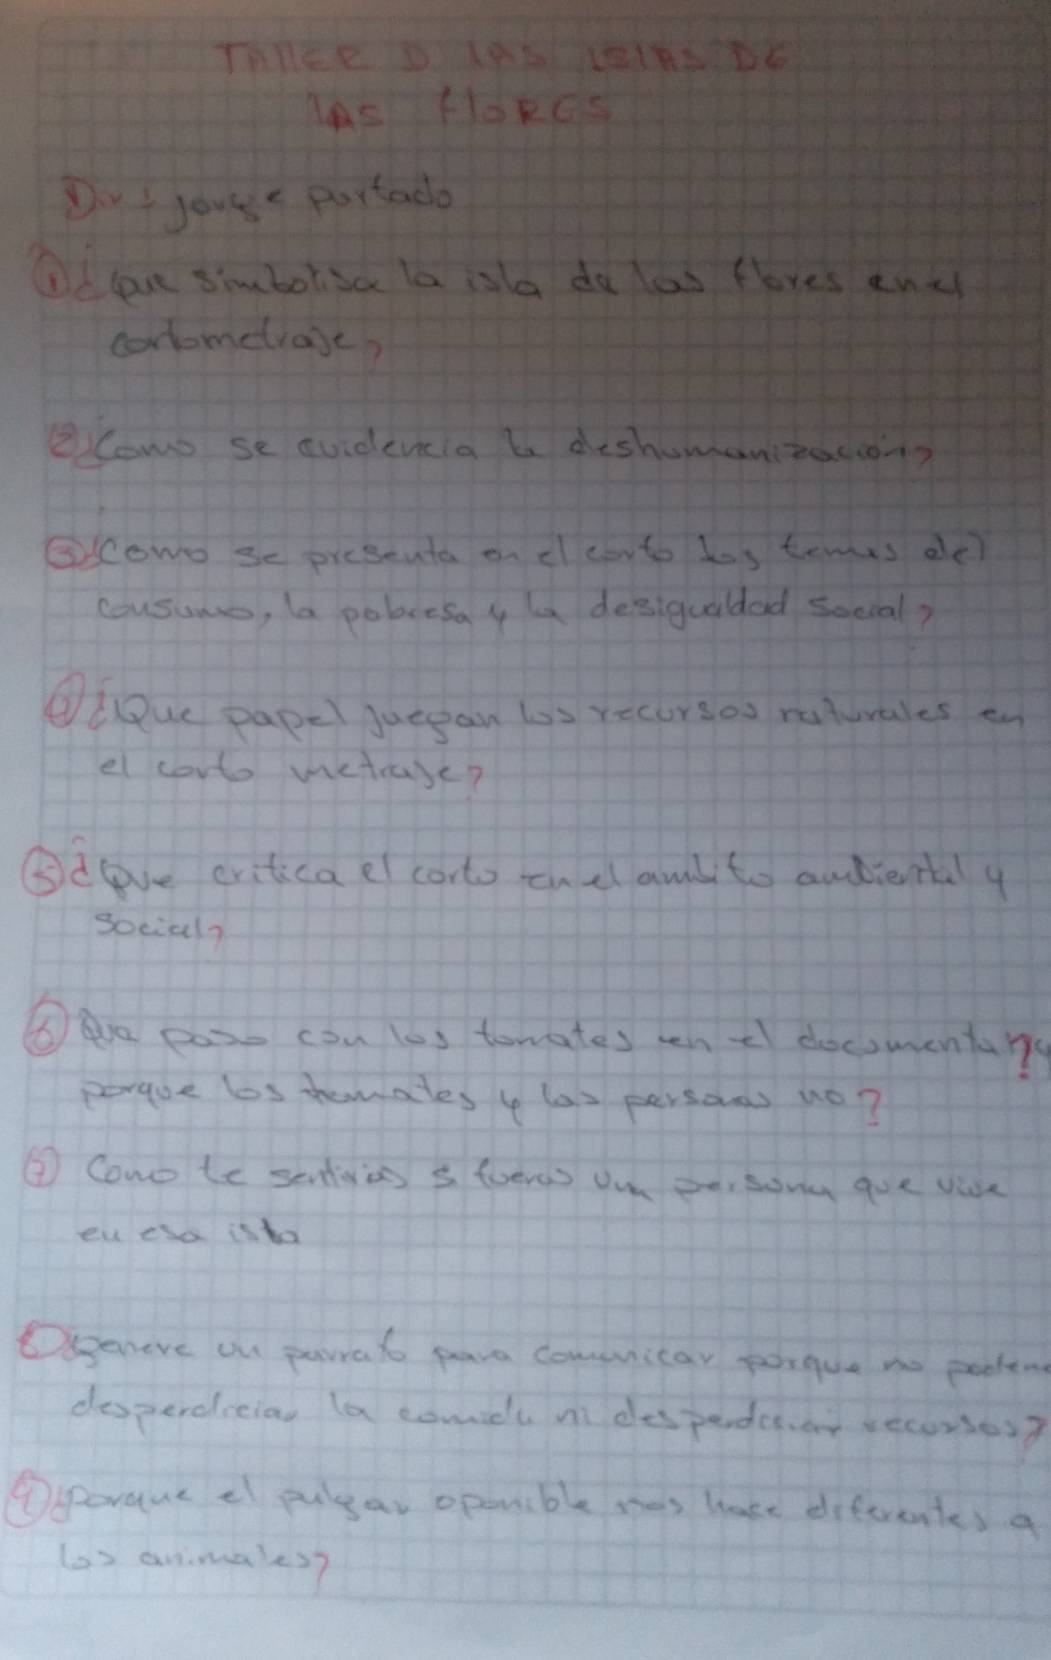 TALLER D LAS ISLAS DE
LAS FLORES
Dir: jorge portado
① ¿que simbolisa la isla de las flores en el
cortometraje?
② ¿como se evidencia la deshumanización?
③ ¿como se presenta en el corto los temas del
consumo, la pobresa y la desigualdad social?
④ ¿Que papel juegan los recursos naturales en
el corto metraje?
⑤ ¿Que critica el corto en el ambito ambiental y
social?
⑥ Que paso con los tomates en el documental? y
porque los tomates y las personas no?
⑦ Como te sentirias si fueras una persona que vive
en esa isla
genere un parrafo para comunicar porque no
desperdiciar la comida ni desperdiciar recursos?
⑨ ¿porque el pulgar oponible nos hace diferentes a
los animales?